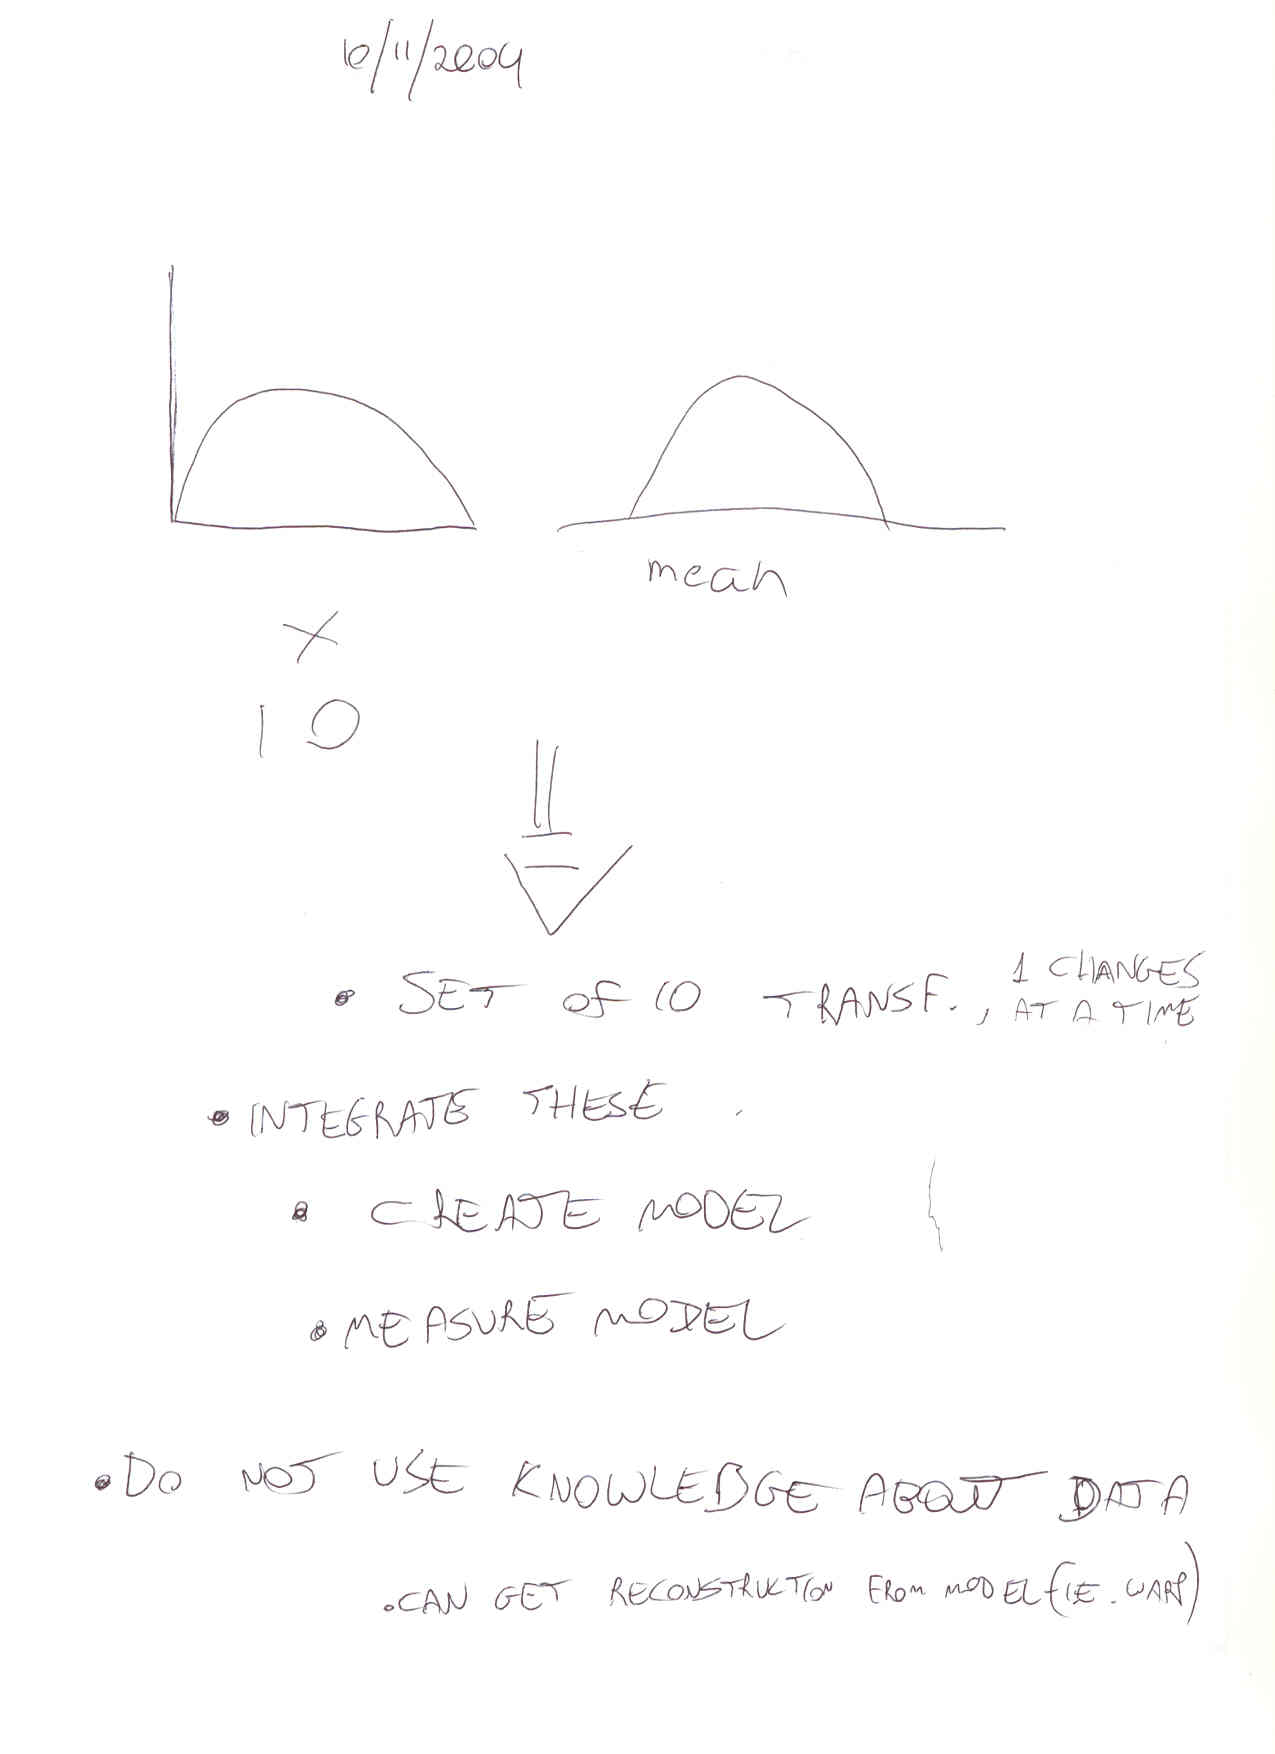 10/11/2004
mean
X
10
• SET of 10 TRANSF., 1 CHANGES
AT A TIME
• INTEGRATE THESE
• CREATE MODEL
• MEASURE MODEL
• DO NOT USE KNOWLEDGE ABOUT DATA
• CAN GET RECONSTRUCTION FROM MODEL (IE. WARP)